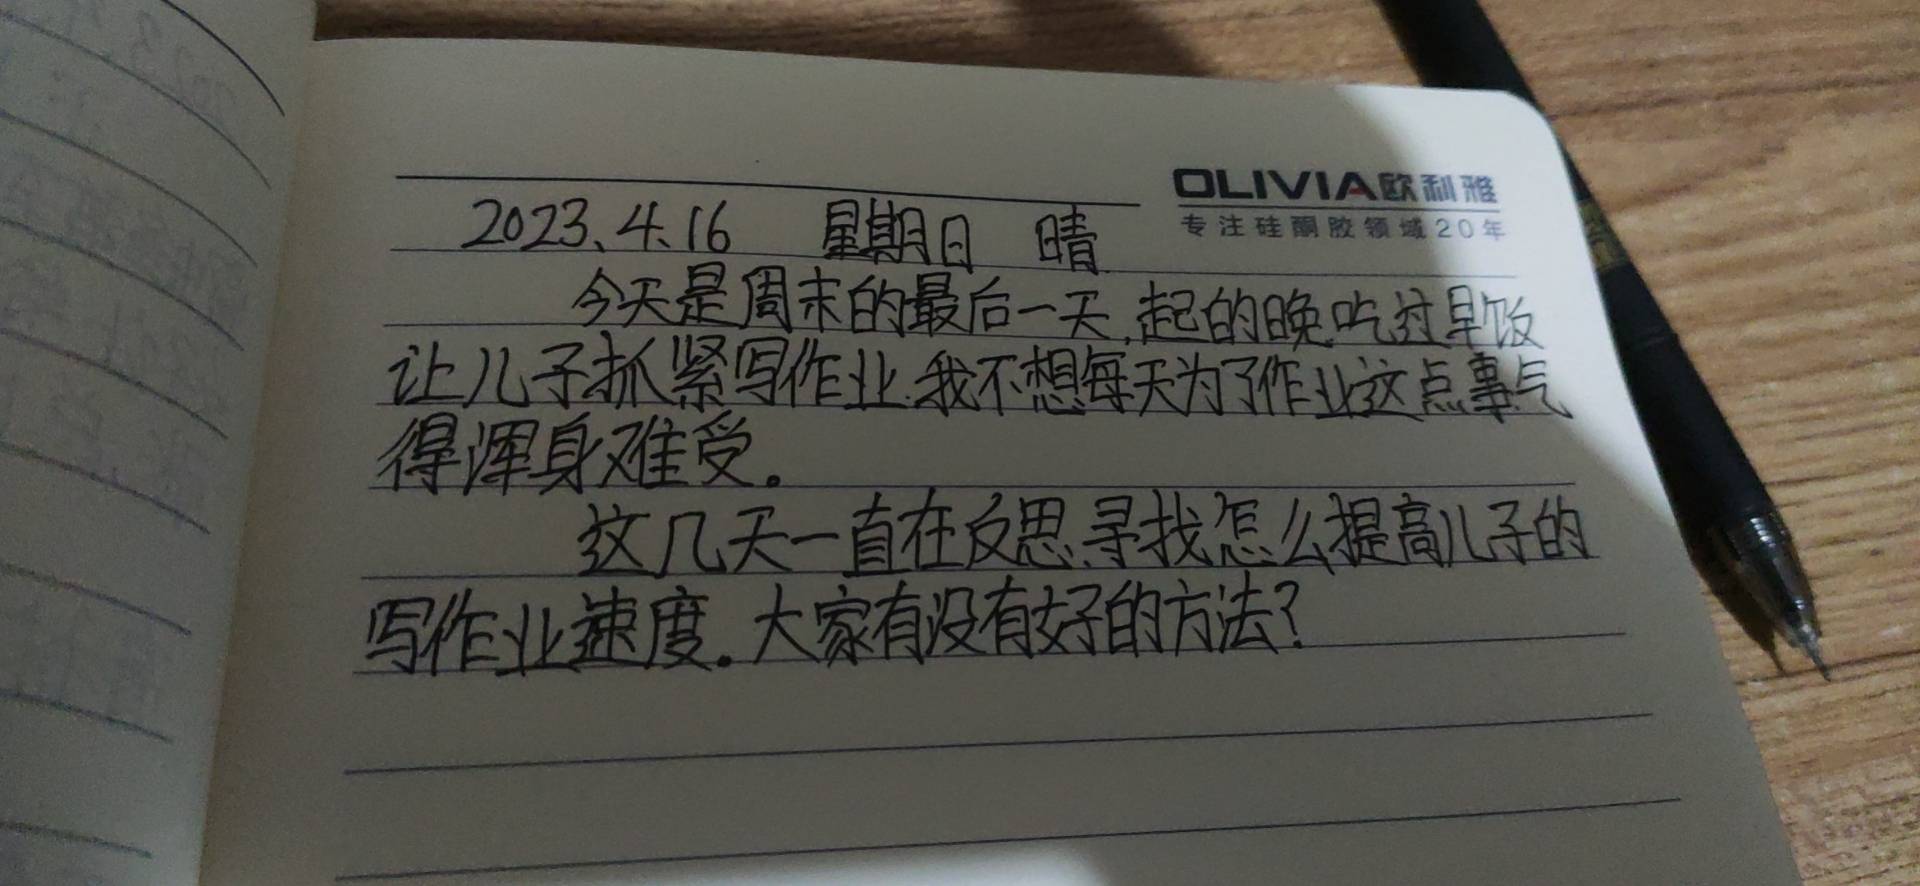 OLIVIA欧利雅
专注硅酮胶领域20年
2023、4、16 星期日 晴
今天是周末的最后一天,起的晚,吃过早饭
让儿子抓紧写作业.我不想每天为了作业这点事气
得浑身难受。
这几天一直在反思、寻找怎么提高儿子的
写作业速度。大家有没有好的方法?